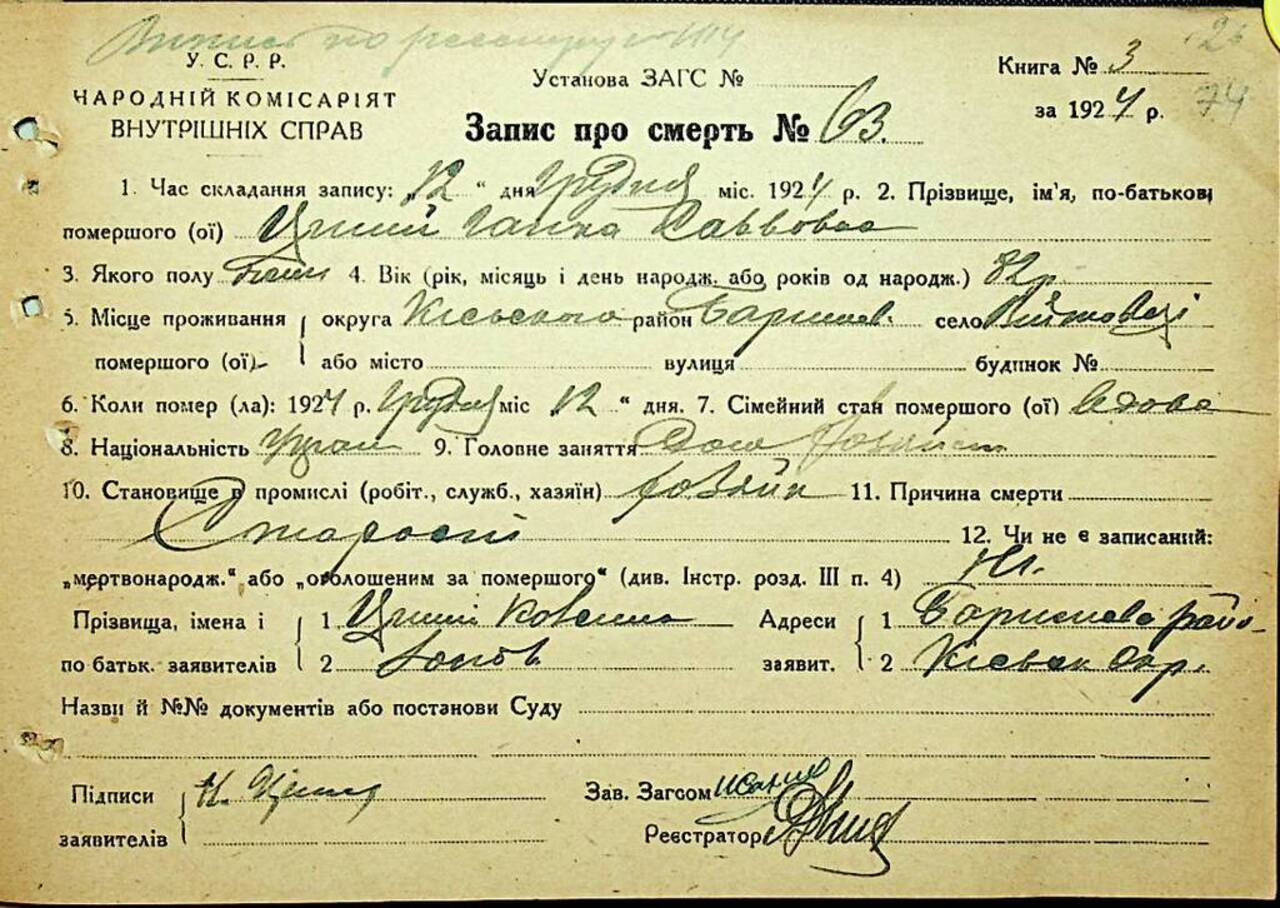 У. С. Р. Р.
НАРОДНІЙ КОМІСАРІЯТ
ВНУТРІШНІХ СПРАВ
Установа ЗАГС №
Книга № 3
за 1924 р.
74
Запис про смерть № 63.
1. Час складання запису: „12“ дня Грудня міс. 1924 р. 2. Прізвище, ім'я, по-батькові
помершого (ої) Ганна Савовна
3. Якого полу 4. Вік (рік, місяць і день народж. або років од народж.) 82 р.
5. Місце проживання округа Київського район Баришев. село Війтовці
помершого (ої) або місто вулиця будинок №
6. Коли помер (ла): 1924 р. Грудня міс 12 “ дня. 7. Сімейний стан помершого (ої) вдова
8. Національність Украї 9. Головне заняття Дом
10. Становище в промислі (робіт., служб., хазяїн) хозяїн 11. Причина смерти
Старость 12. Чи не є записаний:
„мертвонародж.“ або „оголошеним за помершого“ (див. Інстр. розд. III п. 4) Ні.
Прізвища, імена і 1 Адреси 1 Баришево райо-
по батьк. заявителів 2 заявит. 2 Київск Окр.
Назви й №№ документів або постанови Суду
Підписи Зав. Загсом
заявителів Реєстратор